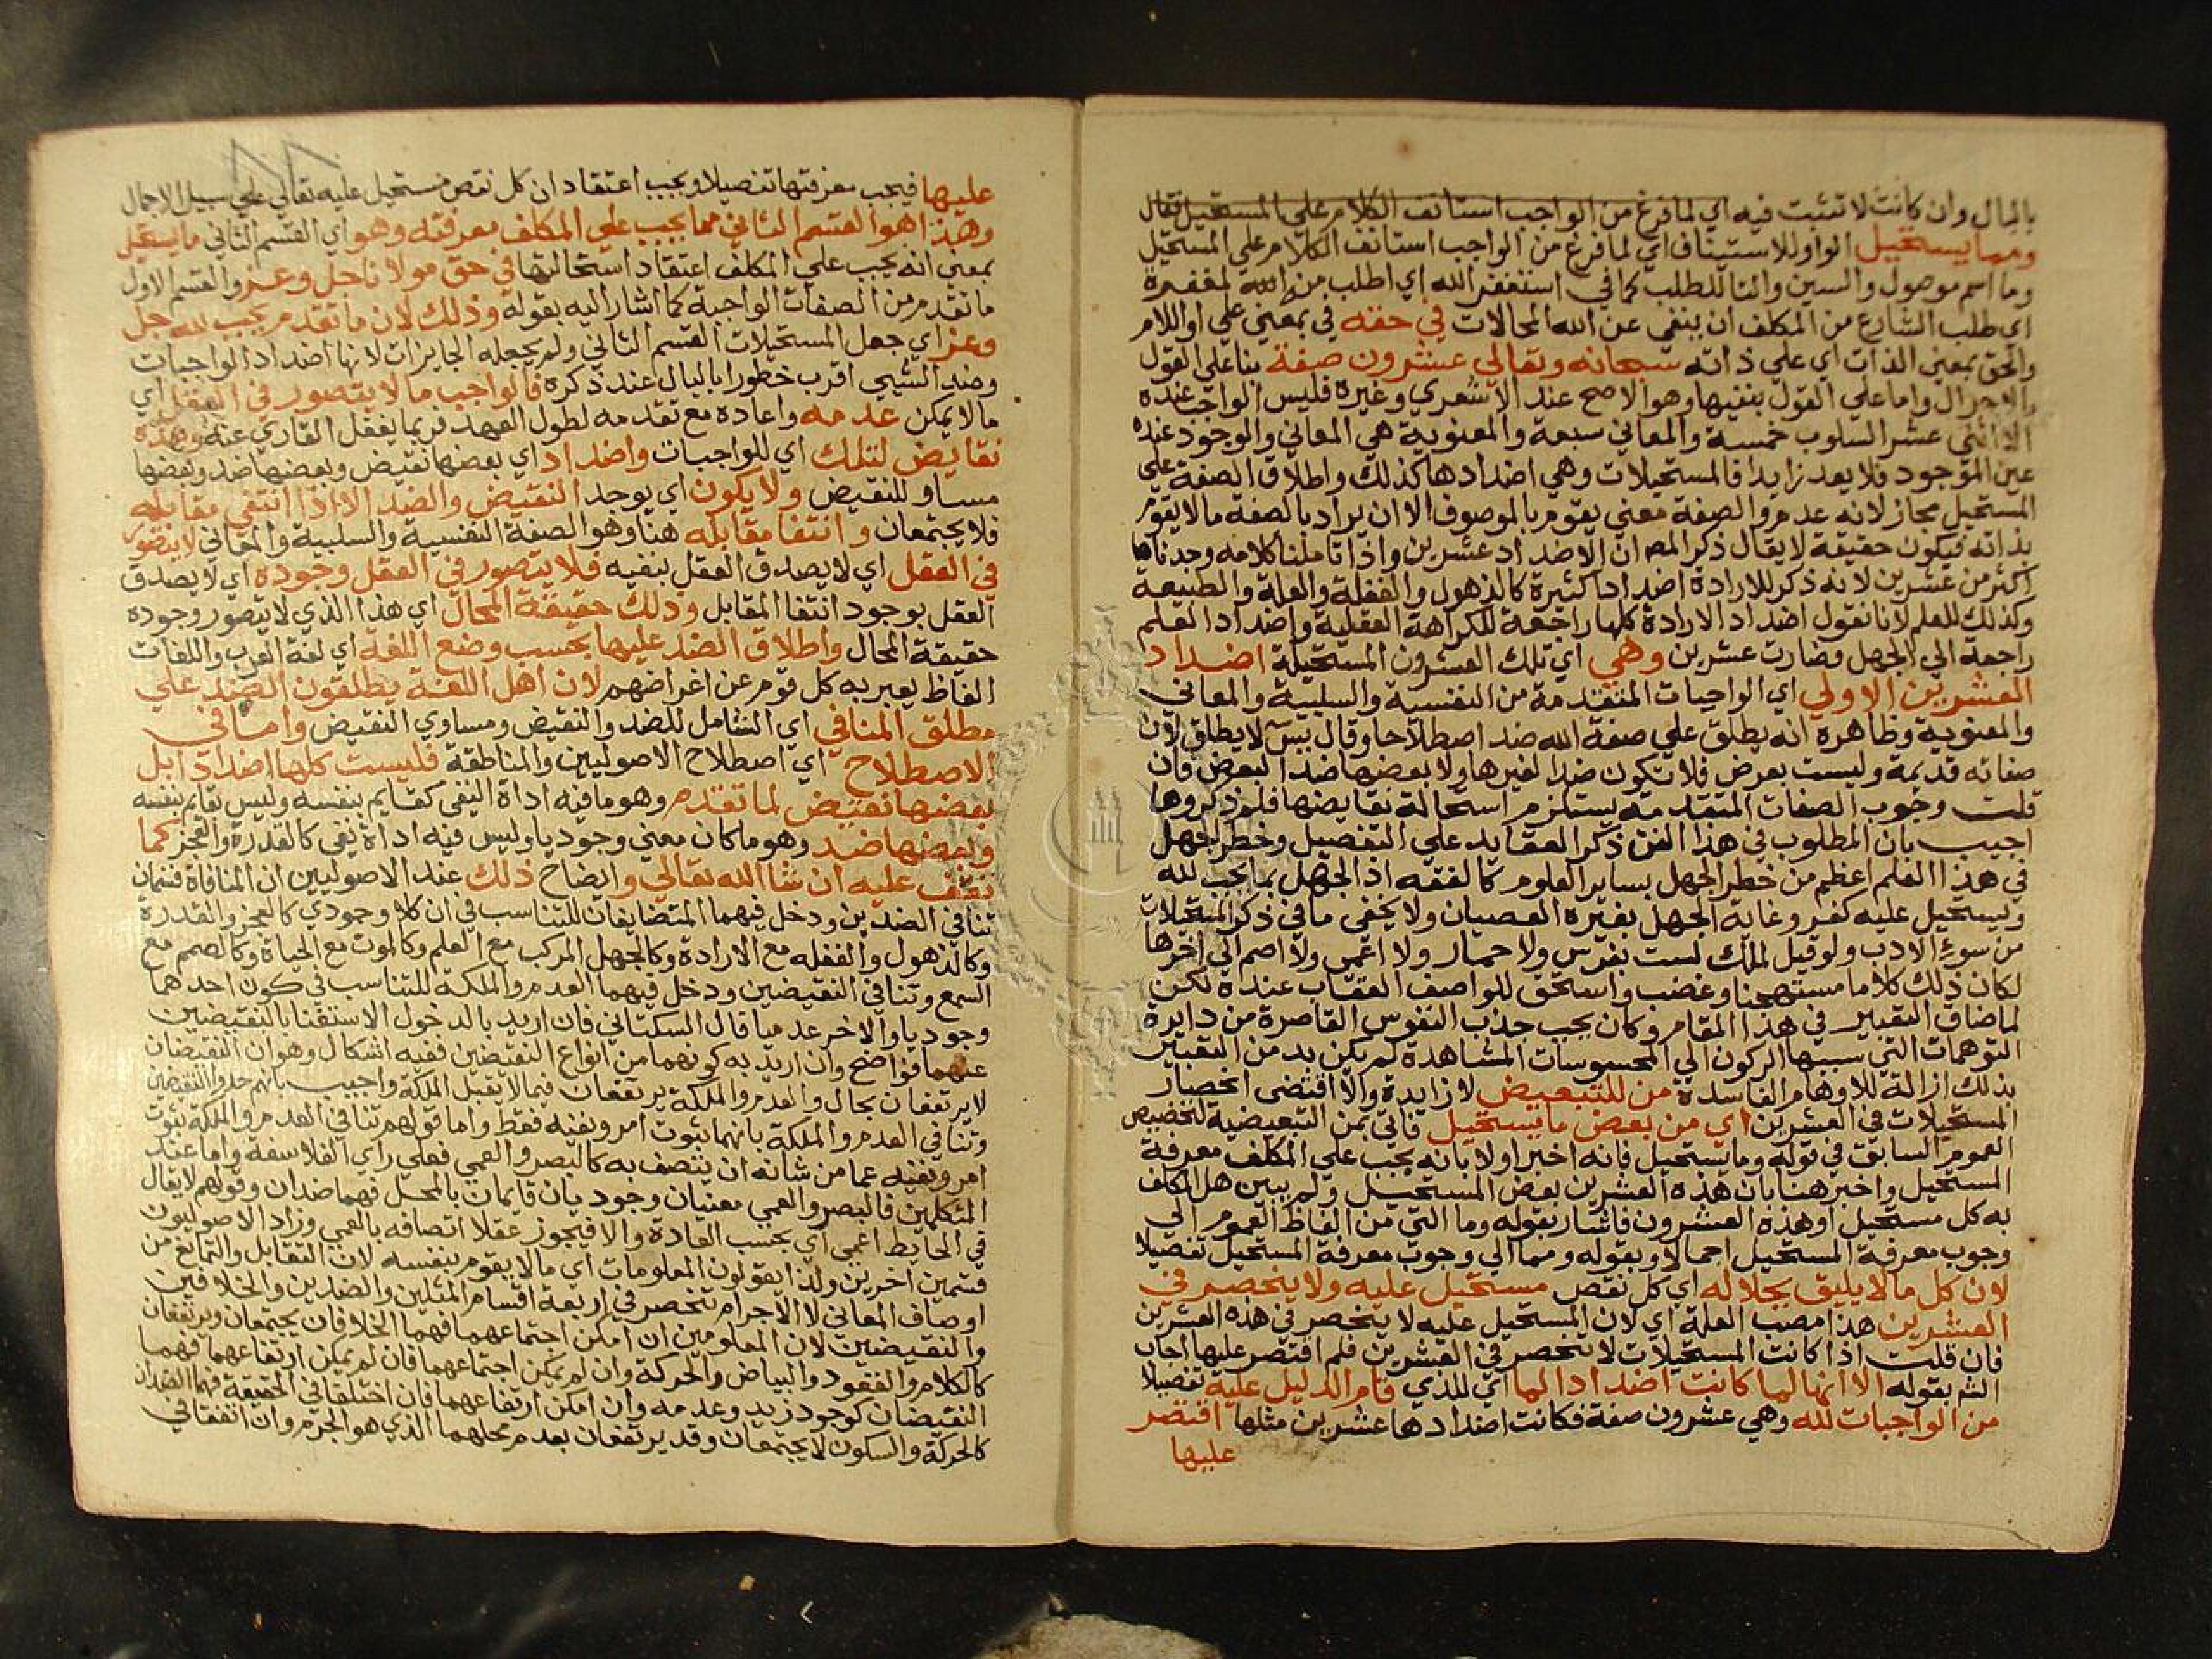 بالبال وان كانت لا تثبت فيه اي لما فرغ من الواجب استانف الكلام علي المستحيل فقال
ومما يستحيل الواو للاستيناف اي لما فرغ من الواجب استانف الكلام علي المستحيل
وما اسم موصول والسين والتا للطلب كما في استغفر الله اي اطلب من الله المغفرة
اي طلب الشارع من المكلف ان ينفي عن الله المحالات في حقه في بمعني علي او اللام
والحق بمعني الذات اي علي ذاته سبحانه وتعالي عشرون صفة بنا علي القول
بالاحوال واما علي القول بنفيها وهو الاصح عند الاشعري وغيره فليس الواجب عنده
الا اثني عشر السلوب خمسة والمعاني سبعة والمعنوية هي المعاني والوجود عنده
عين الموجود فلا يعد زايدا فالمستحيلات وهي اضدادها كذلك واطلاق الصفة علي
المستحيل مجاز لانه عدم والصفة معني يقوم بالموصوف الا ان يراد بالصفة ما لا يقوم
بذاته فيكون حقيقة لا يقال ذكر المص ان الاضداد عشرين واذا تاملنا كلامه وجدناها
اكثر من عشرين لانه ذكر للارادة اضدادا كثيرة كالذهول والغفلة والعلة والطبيعة
وكذلك للعلم لانا نقول اضداد الارادة كلها راجعة للكراهة العقلية واضداد العلم
راجعة الي الجهل فصارت عشرين وهي اي تلك العشرون المستحيلة اضداد
العشرين الاولي اي الواجبات المتقدمة من النفسية والسلبية والمعاني
والمعنوية وظاهره انه يطلق علي صفة الله ضد اصطلاحا وقال يس لا يطلق لان
صفاته قديمة وليست بعرض فلا تكون ضدا لغيرها ولا بعضها ضدا لبعض فان
قلت وجوب الصفات المتقدمة يستلزم استحالة نقايضها فلم ذكروها
اجيب بان المطلوب في هذا الفن ذكر العقايد علي التفصيل وخطر الجهل
في هذا العلم اعظم من خطر الجهل بساير العلوم كالفقه اذ الجهل بما يجب لله
ويستحيل عليه كفر وغاية الجهل بغيره العصيان ولا يخفي ما في ذكر المستحيلات
من سوء الادب ولو قيل لملك لست بفرس ولا حمار ولا اعمي ولا اصم الي اخرها
لكان ذلك كلاما مستهجنا وغضب واستحق للواصف العقاب عنده لكن
لما ضاق التعبير في هذا المقام وكان يجب جذب النفوس القاصرة من دايرة
التوهمات التي سببها الركون الي المحسوسات المشاهدة لم يكن بد من التعبير
بذلك ازالة للاوهام الفاسدة من للتبعيض لا زايدة والا اقتضي انحصار
المستحيلات في العشرين اي من بعض ما يستحيل فاتي بمن التبعيضية لتخصيص
العموم السابق في قوله وما يستحيل فانه اخبر اولا بانه يجب علي المكلف معرفة
المستحيل واخبر هنا بان هذه العشرين بعض المستحيل ولم يبين هل المكلف
به كل مستحيل او هذه العشرون فاشار بقوله وما التي من الفاظ العموم الي
وجوب معرفة المستحيل اجمالا وبقوله ومما الي وجوب معرفة المستحيل تفصيلا
لان كل ما لا يليق بجلاله اي كل نقص مستحيل عليه ولا ينحصر في
العشرين هذا مصب العلة اي لان المستحيل عليه لا ينحصر في هذه العشرين
فان قلت اذا كانت المستحيلات لا تنحصر في العشرين فلم اقتصر عليها اجاب
الشم بقوله الا انها لما كانت اضدادا لما اي للذي قام الدليل عليه تفصيلا
من الواجبات لله وهي عشرون صفة فكانت اضدادها عشرين مثلها اقتصر
عليها
عليها فيجب معرفتها تفصيلا ويجب اعتقاد ان كل نقص مستحيل عليه تعالي علي سبيل الاجمال
وهذا هو القسم الثاني مما يجب علي المكلف معرفته وهو اي القسم الثاني ما يستحيل
بمعني انه يجب علي المكلف اعتقاد استحالتها في حق مولانا جل وعز والقسم الاول
ما تقدم من الصفات الواجبة كما اشار اليه بقوله وذلك لان ما تقدم يجب لله جل
وعز اي جعل المستحيلات القسم الثاني ولم يجعله الجايزات لانها اضداد الواجبات
وضد الشيي اقرب خطورا بالبال عند ذكره فالواجب ما لا يتصور في العقل اي
ما لا يمكن عدمه واعاده مع تقدمه لطول العهد فربما يغفل القاري عنه وهذه
نقايض لتلك اي للواجبات واضداد اي بعضها نقيض وبعضها ضد وبعضها
مساو للنقيض ولا يكون اي يوجد النقيض والضد الا اذا انتفي مقابله
فلا يجتمعان وانتفا مقابله هنا وهو الصفة النفسية والسلبية والمعاني لا يتصور
في العقل اي لا يصدق العقل بنفيه فلا يتصور في العقل وجوده اي لا يصدق
العقل بوجود انتفا المقابل وذلك حقيقة المحال اي هذا الذي لا يتصور وجوده
حقيقة المحال واطلاق الضد عليها بحسب وضع اللغة اي لغة العرب واللغات
الفاظ يعبر به كل قوم عن اغراضهم لان اهل اللغة يطلقون الضد علي
مطلق المنافي اي الشامل للضد والنقيض ومساوي النقيض واما في
الاصطلاح اي اصطلاح الاصوليين والمناطقة فليست كلها اضدادا بل
بعضها نقيض لما تقدم وهو ما فيه اداة النفي كقايم بنفسه وليس قايم بنفسه
وبعضها ضد وهو ما كان معني وجوديا وليس فيه اداة نفي كالقدرة والعجز كما
نقف عليه ان شا الله تعالي وايضاح ذلك عند الاصوليين ان المنافاة قسمان
تنافي الضدين ودخل فيهما المتضايفان للتناسب في ان كلا وجودي كالعجز والقدرة
وكالذهول والغفله مع الارادة وكالجهل المركب مع العلم وكالموت مع الحياة وكالصمم مع
السمع وتنافي النقيضين ودخل فيهما العدم والملكة للتناسب في كون احدهما
وجوديا والاخر عدميا قال السكتاني فان اريد بالدخول الاستغنا بالنقيضين
عنهما فواضح وان اريد به كونهما من انواع النقيضين ففيه اشكال وهو ان النقيضان
لا يرتفعان بحال والعدم والملكة يرتفعان فيما لا يقبل الملكة واجيب بانهم حدوا النقيضين
وتنافي العدم والملكة بانهما ثبوت امر ونفيه فقط واما قولهم تنافي العدم والملكة ثبوت
امر ونفيه عما من شانه ان يتصف به كالبصر والعمي فعلي راي الفلاسفة واما عند
المتكلمين فالبصر والعمي معنيان وجوديان قايمان بالمحل فهما ضدان وقولهم لا يقال
في الحايط اعمي اي بحسب العادة والا فيجوز عقلا اتصافه بالعمي وزاد الاصوليون
قسمين اخرين ولذا يقولون المعلومات اي ما لا يقوم بنفسه لان التقابل والتمانع من
اوصاف المعاني لا الاجرام تنحصر في اربعة اقسام المثلين والضدين والخلافين
والنقيضين لان المعلومين ان امكن اجتماعهما فهما الخلافان يجتمعان ويرتفعان
كالكلام والقعود والبياض والحركة وان لم يمكن اجتماعهما فان لم يمكن ارتفاعهما فهما
النقيضان كوجود زيد وعدمه وان امكن ارتفاعهما فان اختلفا في الحقيقة فهما الضدان
كالحركة والسكون لا يجتمعان وقد يرتفعان بعدم محلهما الذي هو الجرم وان اتفقتا في